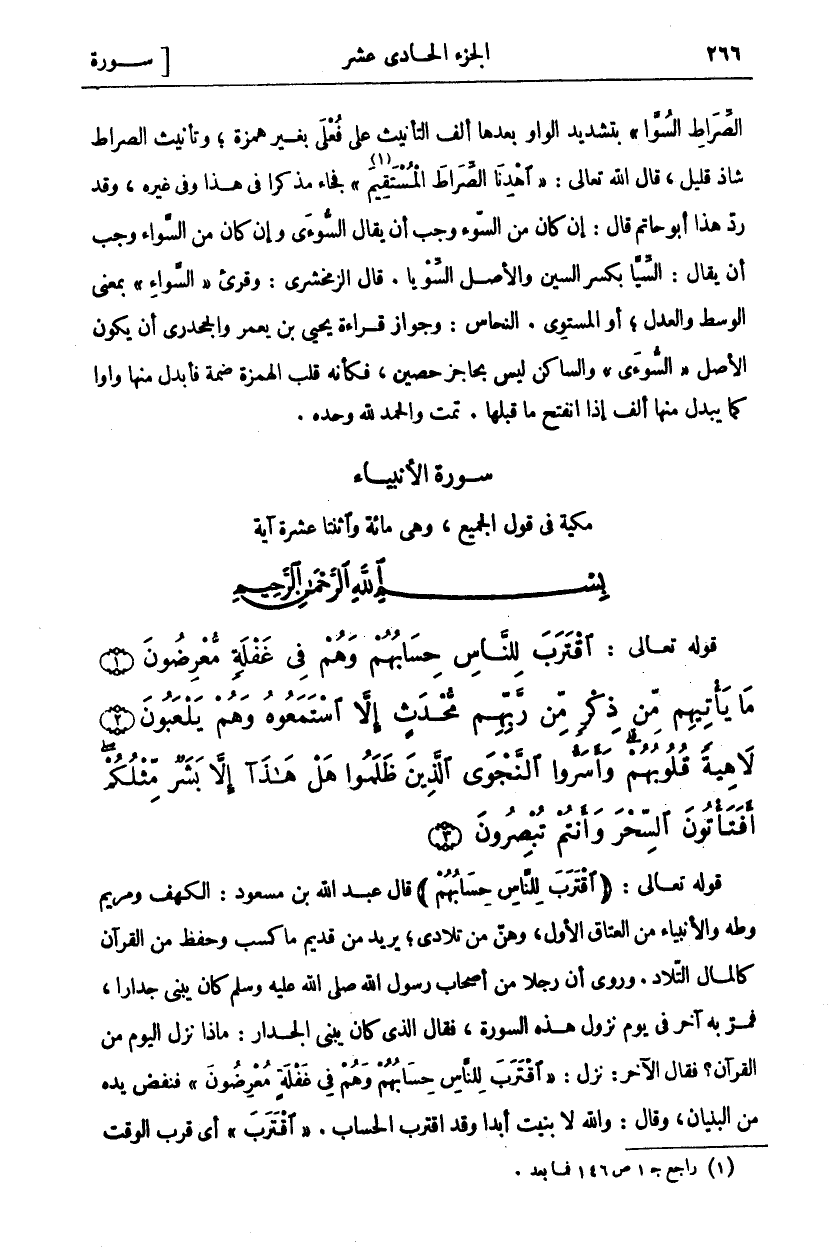 ٢٦٦ الجزء الحادى عشر [ ســورة
الصِّرَاطِ السُّوَّا » بتشديد الواو بعدها ألف التأنيث على فُعْلَى بغير همزة ؛ وتأنيث الصراط
شاذ قليل ، قال الله تعالى : « ٱهْدِنَا الصِّرَاطَ الْمُسْتَقِيمَ (١) » فجاء مذكرا فى هذا وفى غيره ، وقد
ردّ هذا أبو حاتم قال : إن كان من السّوء وجب أن يقال السُّوءَى وإن كان من السَّواء وجب
أن يقال : السِّيَّا بكسر السين والأصل السِّوْيا . قال الزمخشرى : وقرئ « السَّواءِ » بمعنى
الوسط والعدل ؛ أو المستوى . النحاس : وجواز قراءة يحيى بن يعمر والجحدرى أن يكون
الأصل « السُّوءَى » والساكن ليس بحاجز حصين ، فكأنه قلب الهمزة ضمة فأبدل منها واوا
كما يبدل منها ألف إذا انفتح ما قبلها . تمت والحمد لله وحده .
ســورة الأنبيــاء
مكية فى قول الجميع ، وهى مائة وٱثنتا عشرة آية
بِسْــــمِ ٱللَّهِ ٱلرَّحْمَٰنِ ٱلرَّحِيمِ
قوله تعـالى : ٱقْتَرَبَ لِلنَّـاسِ حِسَابُهُمْ وَهُمْ فِى غَفْلَةٍ مُّعْرِضُونَ (١)
مَا يَأْتِيهِم مِّن ذِكْرٍ مِّن رَّبِّهِم مُّحْدَثٍ إِلَّا ٱسْتَمَعُوهُ وَهُمْ يَلْعَبُونَ (٢)
لَاهِيَةً قُلُوبُهُمْ ۗ وَأَسَرُّوا ٱلنَّجْوَى ٱلَّذِينَ ظَلَمُوا هَلْ هَـٰذَآ إِلَّا بَشَرٌ مِّثْلُكُمْ ۖ
أَفَتَأْتُونَ ٱلسِّحْرَ وَأَنتُمْ تُبْصِرُونَ (٣)
قوله تعـالى : ﴿ ٱقْتَرَبَ لِلنَّاسِ حِسَابُهُمْ ﴾ قال عبد الله بن مسعود : الكهف ومريم
وطه والأنبياء من العتاق الأول، وهنّ من تلادى ؛ يريد من قديم ما كسب وحفظ من القرآن
كالمال التّلاد . وروى أن رجلا من أصحاب رسول الله صلى الله عليه وسلم كان يبنى جدارا ،
فمــرّ به آخر فى يوم نزول هــذه السورة ، فقال الذى كان يبنى الجدار : ماذا نزل اليوم من
القرآن؟ فقال الآخر: نزل : « ٱقْتَرَبَ لِلنَّاسِ حِسَابُهُمْ وَهُمْ فِى غَفْلَةٍ مُعْرِضُونَ » فنفض يده
من البنيان، وقال : والله لا بنيت أبدا وقد اقترب الحساب . « ٱقْتَرَبَ » أى قرب الوقت
(١) راجع جـ ١ ص ١٤٦ فـا بعد .